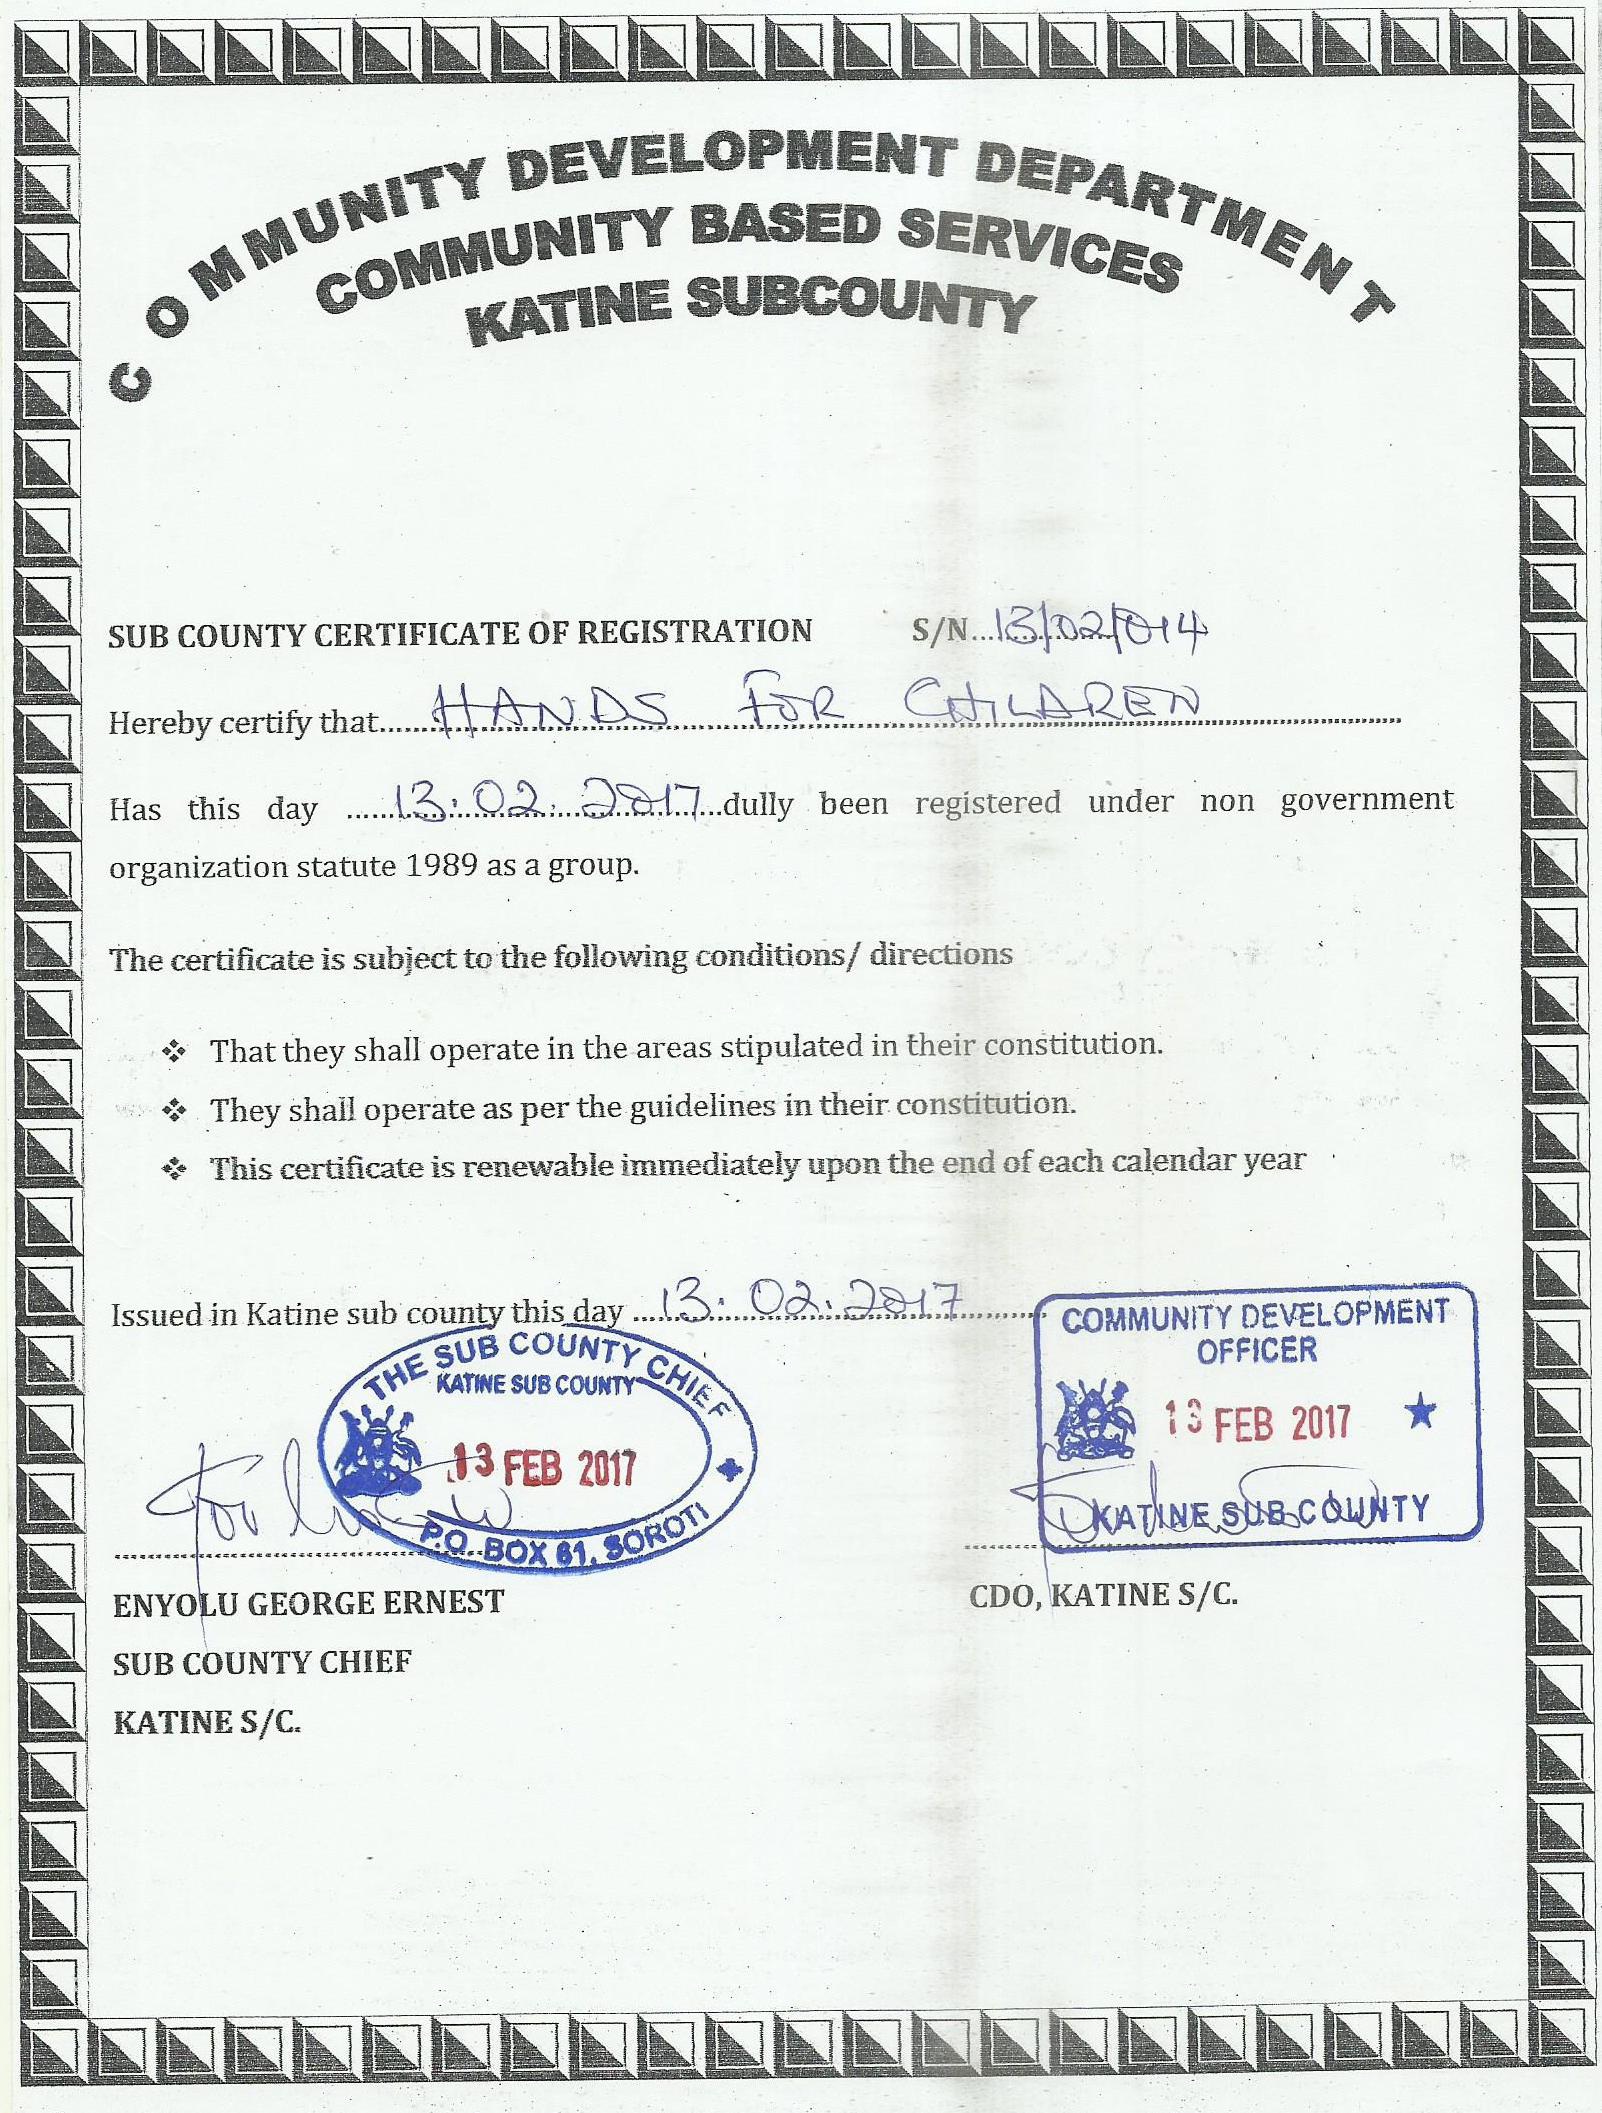 COMMUNITY DEVELOPMENT DEPARTMENT
COMMUNITY BASED SERVICES
KATINE SUBCOUNTY
SUB COUNTY CERTIFICATE OF REGISTRATION S/N...13/02/014
Hereby certify that...HANDS FOR CHILDREN...
Has this day ...13.02.2017...dully been registered under non government
organization statute 1989 as a group.
The certificate is subject to the following conditions/ directions
❖ That they shall operate in the areas stipulated in their constitution.
❖ They shall operate as per the guidelines in their constitution.
❖ This certificate is renewable immediately upon the end of each calendar year
Issued in Katine sub county this day ...13.02.2017...
THE SUB COUNTY CHIEF
KATINE SUB COUNTY
13 FEB 2017
P.O. BOX 61, SOROTI
COMMUNITY DEVELOPMENT
OFFICER
13 FEB 2017
KATINE SUB COUNTY
ENYOLU GEORGE ERNEST
SUB COUNTY CHIEF
KATINE S/C.
CDO, KATINE S/C.